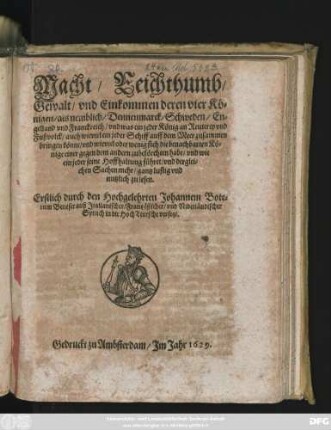 Macht / Reichthumb /
Gewalt / vnd Einkommen deren vier Kö-
nigen / als nemblich / Dennemarck / Schweden / En-
gelland vnd Franckreich / vnd was ein jeder König an Reutern vnd
Fußvolck / auch wieviel ein jeder Schiff auff dem Meer zusammen
bringen könne / vnd wieviel oder wenig sich die benachbauren Kö-
nige einer gegen dem andern zubefürchten habe / vnd wie
ein jeder seine Hoffhaltung führet / vnd dergleich-
chen Sachen mehr / gantz lustig vnd
nützlich zu lesen.
Erstlich durch den Hochgelehrten Johannem Bote-
rum Benesser auß Italianischer / Frantzösischer / vnd
Sprach in die Hoch Teutsche versetzt.
Gedruckt zu Ambsterdam / Im Jahr 1629.
SLUB
DFG